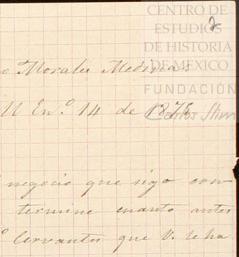 CENTRO DE
ESTUDIOS
DE HISTORIA
DE MEXICO
FUNDACIÓN
2
o Morales Medina
M En.º 14 de 1878
negocio que sigo con
termine cuanto antes
º Cervantes que V. le ha